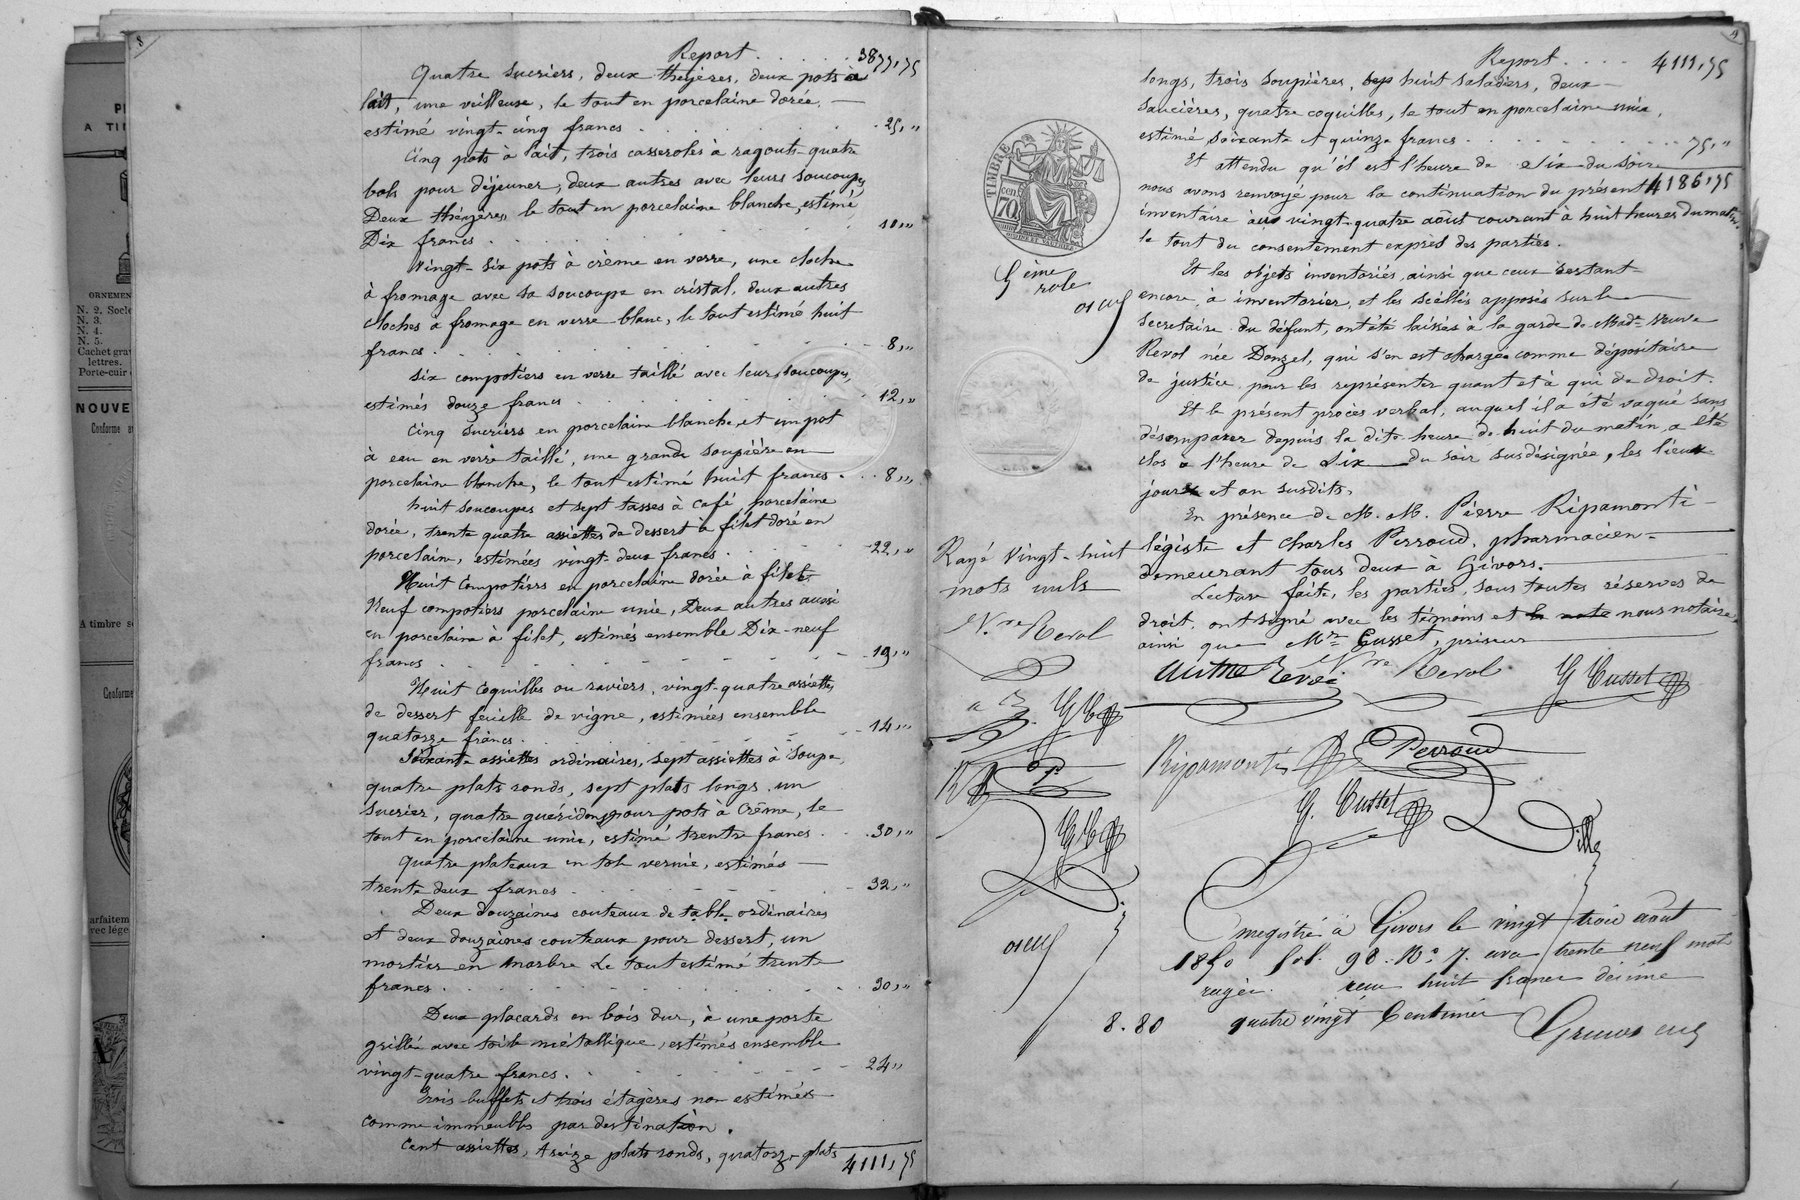 8
Report . . . . . 3877,75
Quatre sucriers, deux theyères, deux pots à
lait, une veilleuse, le tout en porcelaine dorée, —
estimé vingt-cinq francs . . . . . . . 25,"
Cinq pots à lait, trois casseroles à ragouts quatre
bols pour déjeuner, deux autres avec leurs soucoupes
Deux théyères, le tout en porcelaine blanche, estimé
Dix francs . . . . . . . . 10,"
Vingt-six pots à crème en verre, une cloche
à fromage avec sa soucoupe en cristal, deux autres
cloches à fromage en verre blanc, le tout estimé huit
francs . . . . . . . . 8,"
Six compotiers en verre taillé avec leurs soucoupes,
estimés douze francs . . . . . . . 12,"
Cinq sucriers en porcelaine blanche, et un pot
à eau en verre taillé, une grande soupière en
porcelaine blanche, le tout estimé huit francs . . 8,"
huit soucoupes et sept tasses à café, porcelaine
dorée, trente quatre assiettes de dessert à filet doré en
porcelaine, estimées vingt-deux francs . . . . 22,"
Huit Compotiers en porcelaine dorée à filets
Neuf compotiers porcelaine unie, Deux autres aussi
en porcelaine à filet, estimés ensemble Dix-neuf
francs . . . . . . . . 19,"
Huit Coquilles ou raviers, vingt-quatre assiettes
de dessert feuille de vigne, estimées ensemble
quatorze francs . . . . . . . 14,"
Soixante assiettes ordinaires, sept assiettes à soupe
quatre plats ronds, sept plats longs, un
sucrier, quatre guéridons pour pots à Crême, le
tout en porcelaine unie, estimé trente francs . . 30,"
Quatre plateaux en tole vernie, estimés —
trente deux francs . . . . . . . 32,"
Deux douzaines couteaux de table ordinaires
et deux douzaines couteaux pour dessert, un
mortier en marbre Le tout estimé trente
francs . . . . . . . . 30,"
Deux placards en bois dur, à une porte
grillée avec toile métallique, estimés ensemble
vingt-quatre francs . . . . . . . 24"
Trois buffets et trois étagères non estimés
comme immeubles par destination.
Cent assiettes, treize plats ronds, quatorze plats
4111,75
PR
A TI
ORNEMEN
N. 2. Socle
N. 3.
N. 4.
N. 5.
Cachet grav
lettres.
Porte-cuir
NOUVE
Conforme a
A timbre s
Conforme
arfaitem
vec lége
9
Report . . . . 4111,75
longs, trois soupières, sep huit saladiers, deux —
saucières, quatre coquilles, le tout en porcelaine unie,
estimé soixante et quinze francs . . . . . . . . 75,"
4186,75
Et attendu qu'il est l'heure de Six du soir
nous avons renvoyé pour la continuation du présent
inventaire au vingt-quatre août courant à huit heures du matin
le tout du consentement exprès des parties.
Et les objets inventoriés, ainsi que ceux restant
encore, à inventorier, et les scellés apposés sur le —
secretaire du défunt, ont été laissés à la garde de Made Veuve
Revol née Donzel, qui s'en est chargée comme dépositaire
de justice pour les représenter quant et à qui de droit.
Et le présent procès verbal, auquel il a été vaqué sans
désemparer depuis la dite heure de huit du matin, a été
clos à l'heure de Six — du soir susdésignée, les lieux
jour et an susdits.
En présence de M. M. Pierre Ripamonti —
légiste et Charles Perroud, pharmacien —
demeurant tous deux à Givors.
Lecture faite, les parties, sous toutes réserves de
droit, ont signé avec les témoins et le note nous notaire
ainsi que Mr Cusset, priseur
TIMBRE
cen
70
5ème
role
Rayé vingt-huit
mots nuls
Vve Revol
Vve Revol
G Cusset
Ripamonti
Perroud
G. Cusset
Enregistré à Givors le vingt trois août
1850 fol. 98. Ro 7. avec trente neuf mots
rayés. reçu huit francs décime
8.80
quatre vingt Centimes